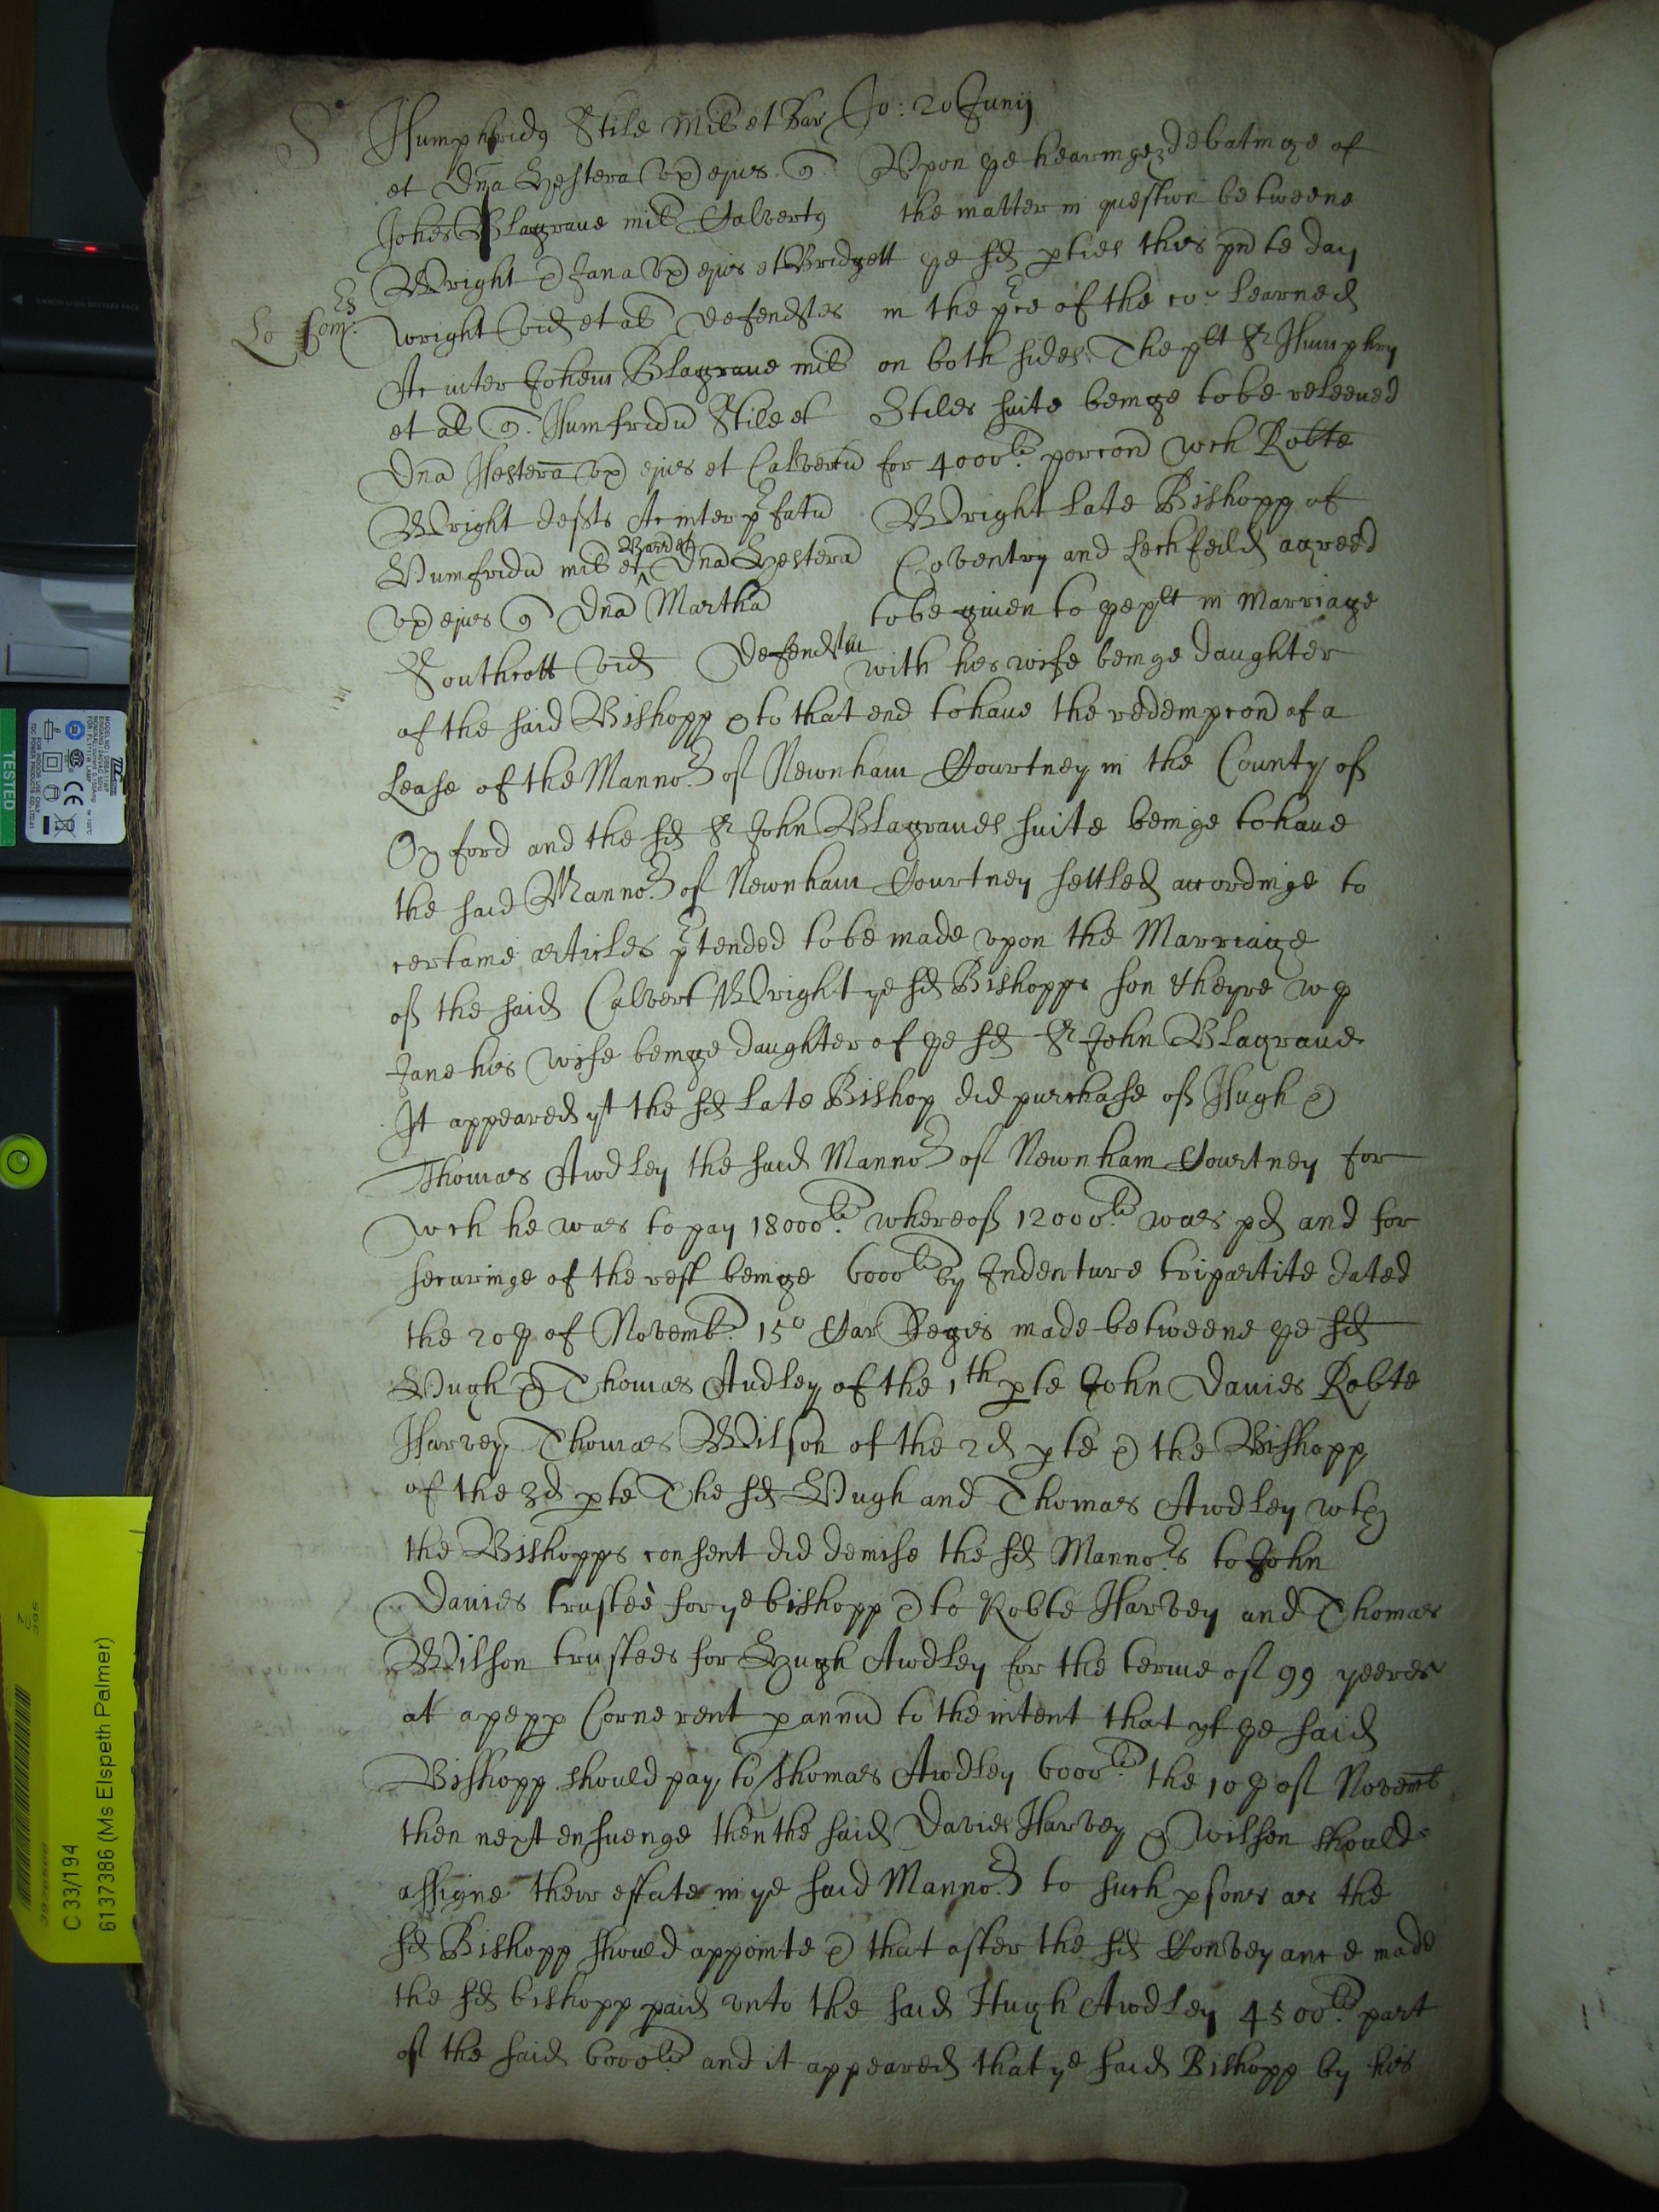 S Humphridus Stile Mil et Bar Jo: 20 Junij
et Dna Hestera ux ejus Upon ye hearinge & debatinge of
Johes Blagrave mil Calvertus the matter in question betweene
Wright & Jana ux ejus et Bridgett ye sd pties this pnte day
Lo Com:rs
wright vid et al defendtes in the pce of the co: learned
Ac inter Johem Blagrave mil on both sides. The plt Sr Humphry
et al Humfridu Stile et Stiles suite beinge to be releeved
Dna Hestera ux ejus et Calvertu for 4000li porcon wch Robte
Wright defts Ac inter pfatu Wright late Bishopp of
Humfridu mil et Barrtt Dna Hestera Coventry and Lechfeild agreed
ux ejus Dna Martha to be given to ye plt in Marriage
Southcott vid Defendtem with his wife beinge daughter
of the said Bishopp & to that end to have the redempcon of a
Lease of the Mannor of Newnham Courtney in the County of
Oxford and the sd Sr John Blagraves suite beinge to have
the said Mannor of Newnham Courtney settled accordinge to
certaine articles ptended to be made upon the Marriage
of the said Calvert Wright ye sd Bishopps son & heyre wth
Jane his wife beinge daughter of ye sd Sr John Blagrave
It appeared yt the sd late Bishop did purchase of Hugh &
Thomas Awdley the said Mannor of Newnham Courtney for
wch he was to pay 18000li whereof 12000li was pd and for
securinge of the rest beinge 6000li by Indenture tripartite dated
the 20th of Novemb: 15o Car Regis made betweene ye sd
Hugh & Thomas Audley of the 1th pte John Davies Robte
Harvey Thomas Wilson of the 2d pte & the Bishopp
of the 3d pte The sd Hugh and Thomas Awdley wth
the Bishopps consent did demise the sd Mannors to John
Davies trustee for ye bishopp & to Robte Harvey and Thomas
Wilson trustees for Hugh Awdley for the terme of 99 yeeres
at a pepp Corne rent p annu to the intent that yf ye said
Bishopp should pay to Thomas Awdley 6000li the 10th of Novemb
then next ensuenge then the said Davies Harvey & Wilson should
assigne their estate in ye said Mannor to such psons as the
sd Bishopp should appointe & that after the sd Conveyance made
the sd bishopp paid unto the said Hugh Awdley 4500li part
of the said 6000li and it appeared that ye said Bishopp by his
TESTED
C 33/194
6137386 (Ms Elspeth Palmer)